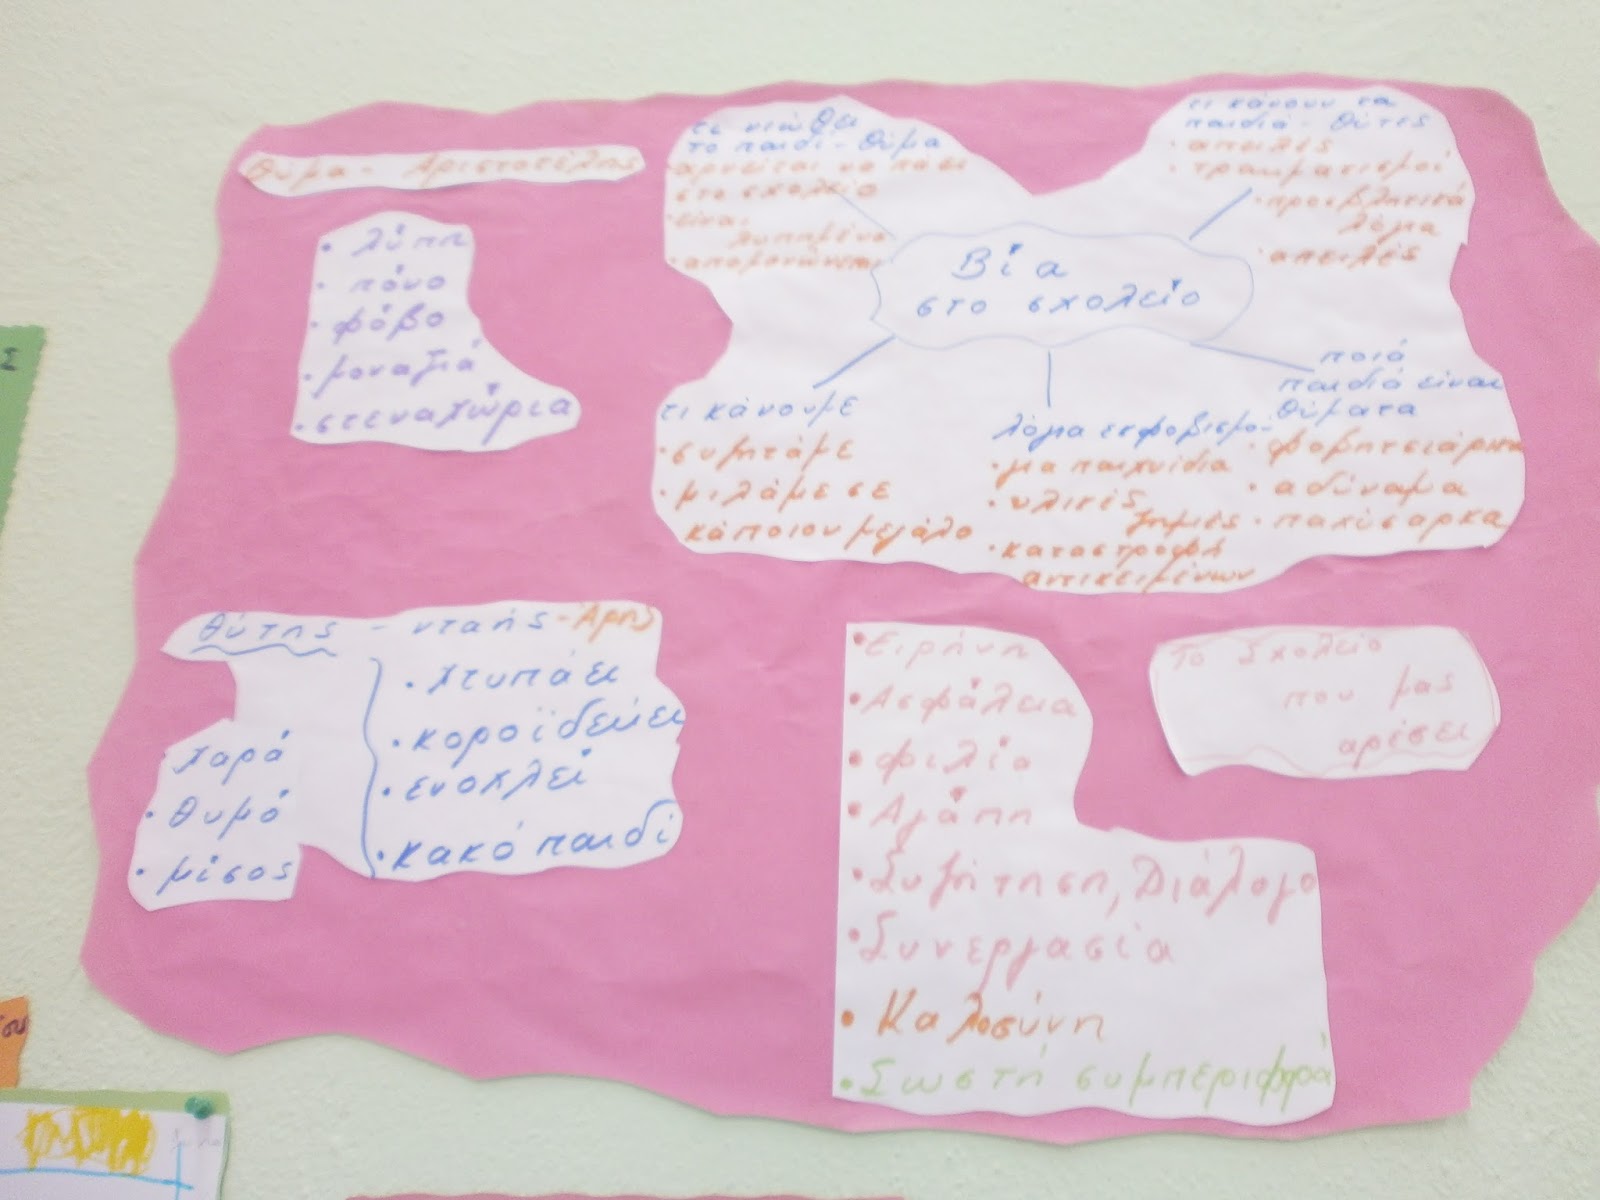 θύμα - Αριστοτέλης
• λύπη
• πόνο
• φόβο
• μοναξιά
• στεναχώρια
τι νιώθει
το παιδί - θύμα
• αρνείται να πάει
στο σχολείο
• είναι
λυπημένο
• απομονώνεται
τι κάνουν τα
παιδιά - θύτες
• απειλές
• τραυματισμοί
• προσβλητικά
λόγια
• απειλές
Βία
στο σχολείο
τι κάνουμε
• συζητάμε
• μιλάμε σε
κάποιον μεγάλο
λόγια εκφοβισμο-
• για παιχνίδια
• υλικές
ζημιές
• καταστροφή
αντικειμένων
ποιά
παιδιά είναι
θύματα
• φοβητσιάρικα
• αδύναμα
• παχύσαρκα
θύτης - νταής - Άρης
• χαρά
• θυμό
• μίσος
• χτυπάει
• κοροϊδεύει
• ενοχλεί
• κακό παιδί
• Ειρήνη
• Ασφάλεια
• φιλία
• Αγάπη
• Συζήτηση, Διάλογο
• Συνεργασία
• Καλοσύνη
• Σωστή συμπεριφορά
Το Σχολείο
που μας
αρέσει
Σ